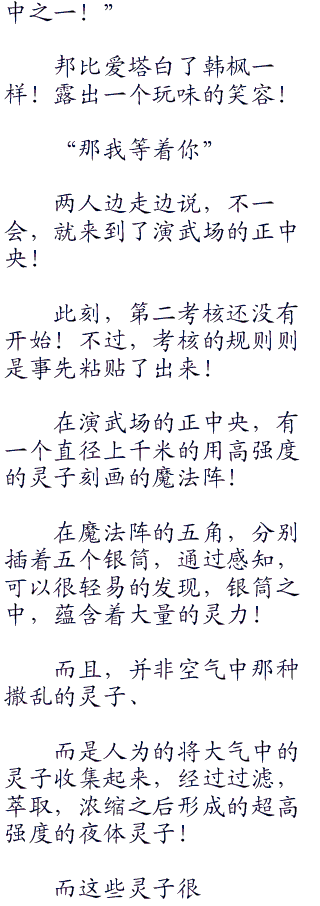 中之一！”
邦比爱塔白了韩枫一
样！露出一个玩味的笑容！
“那我等着你”
两人边走边说，不一
会，就来到了演武场的正中
央！
此刻，第二考核还没有
开始！不过，考核的规则则
是事先粘贴了出来！
在演武场的正中央，有
一个直径上千米的用高强度
的灵子刻画的魔法阵！
在魔法阵的五角，分别
插着五个银筒，通过感知，
可以很轻易的发现，银筒之
中，蕴含着大量的灵力！
而且，并非空气中那种
撒乱的灵子、
而是人为的将大气中的
灵子收集起来，经过过滤，
萃取，浓缩之后形成的超高
强度的夜体灵子！
而这些灵子很